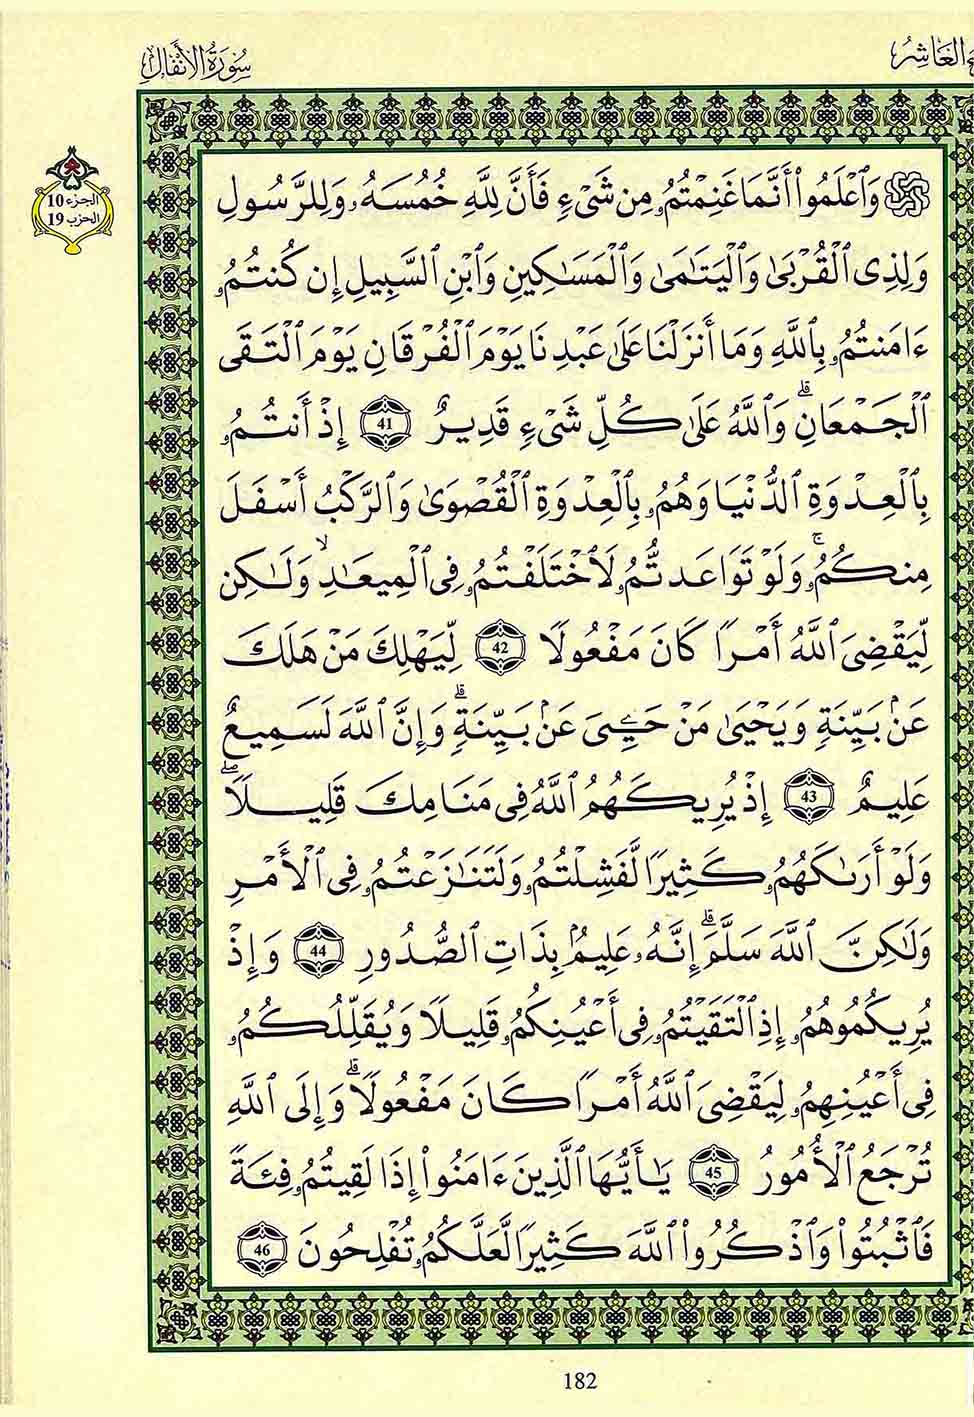 ـزء العَاشِرُ
سُورَةُ الأَنفَالِ
الجزء 10
الحزب 19
۞ وَٱعْلَمُوٓا۟ أَنَّمَا غَنِمْتُمُۥ مِن شَىْءٍ فَأَنَّ لِلَّهِ خُمُسَهُۥ وَلِلرَّسُولِ
وَلِذِى ٱلْقُرْبَىٰ وَٱلْيَتَـٰمَىٰ وَٱلْمَسَـٰكِينِ وَٱبْنِ ٱلسَّبِيلِ إِن كُنتُمُۥ
ءَامَنتُمُۥ بِٱللَّهِ وَمَا أَنزَلْنَا عَلَىٰ عَبْدِنَا يَوْمَ ٱلْفُرْقَانِ يَوْمَ ٱلْتَقَى
ٱلْجَمْعَانِ ۗ وَٱللَّهُ عَلَىٰ كُلِّ شَىْءٍ قَدِيرٌ 41 إِذْ أَنتُمُۥ
بِٱلْعِدْوَةِ ٱلدُّنْيَا وَهُمُۥ بِٱلْعِدْوَةِ ٱلْقُصْوَىٰ وَٱلرَّكْبُ أَسْفَلَ
مِنكُمُۥ ۚ وَلَوْ تَوَاعَدتُّمُۥ لَٱخْتَلَفْتُمُۥ فِى ٱلْمِيعَـٰدِ ۙ وَلَـٰكِن
لِّيَقْضِىَ ٱللَّهُ أَمْرًا كَانَ مَفْعُولًا 42 لِّيَهْلِكَ مَنْ هَلَكَ
عَنۢ بَيِّنَةٍ وَيَحْيَىٰ مَنْ حَيِىَ عَنۢ بَيِّنَةٍ ۗ وَإِنَّ ٱللَّهَ لَسَمِيعٌ
عَلِيمٌ 43 إِذْ يُرِيكَهُمُ ٱللَّهُ فِى مَنَامِكَ قَلِيلًا ۖ
وَلَوْ أَرَىٰكَهُمُۥ كَثِيرًا لَّفَشِلْتُمُۥ وَلَتَنَـٰزَعْتُمُۥ فِى ٱلْأَمْرِ
وَلَـٰكِنَّ ٱللَّهَ سَلَّمَ ۗ إِنَّهُۥ عَلِيمٌۢ بِذَاتِ ٱلصُّدُورِ 44 وَإِذْ
يُرِيكُمُوهُمُۥ إِذِ ٱلْتَقَيْتُمُۥ فِى أَعْيُنِكُمُۥ قَلِيلًا وَيُقَلِّلُكُمُۥ
فِى أَعْيُنِهِمُۥ لِيَقْضِىَ ٱللَّهُ أَمْرًا كَانَ مَفْعُولًا ۗ وَإِلَى ٱللَّهِ
تُرْجَعُ ٱلْأُمُورُ 45 يَـٰأَيُّهَا ٱلَّذِينَ ءَامَنُوا۟ إِذَا لَقِيتُمُۥ فِئَةً
فَٱثْبُتُوا۟ وَٱذْكُرُوا۟ ٱللَّهَ كَثِيرًا لَّعَلَّكُمُۥ تُفْلِحُونَ 46
182